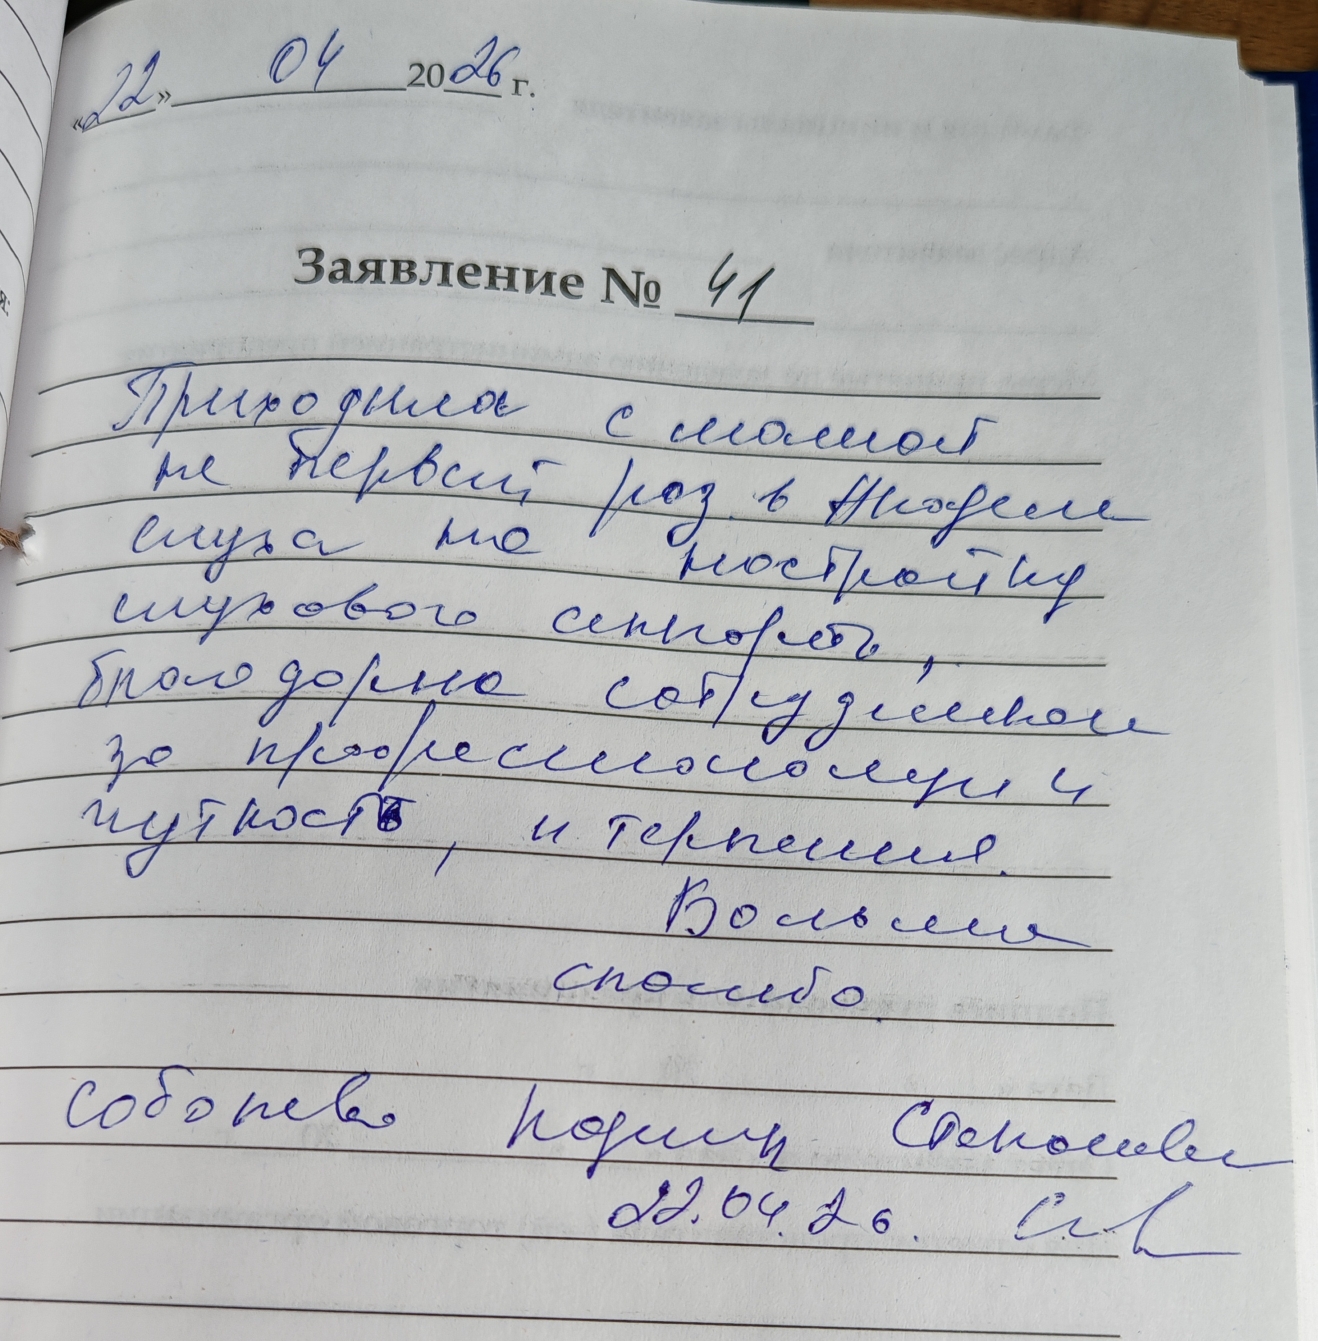 «22» 04 2026 г.
Заявление № 41
Приходила с мамой
не первый раз в Академию
слуха на настройку
слухового аппарата,
благодарна сотрудникам
за профессионализм и
чуткость, и терпения.
Большое
спасибо.
Соболева
22.04.26.